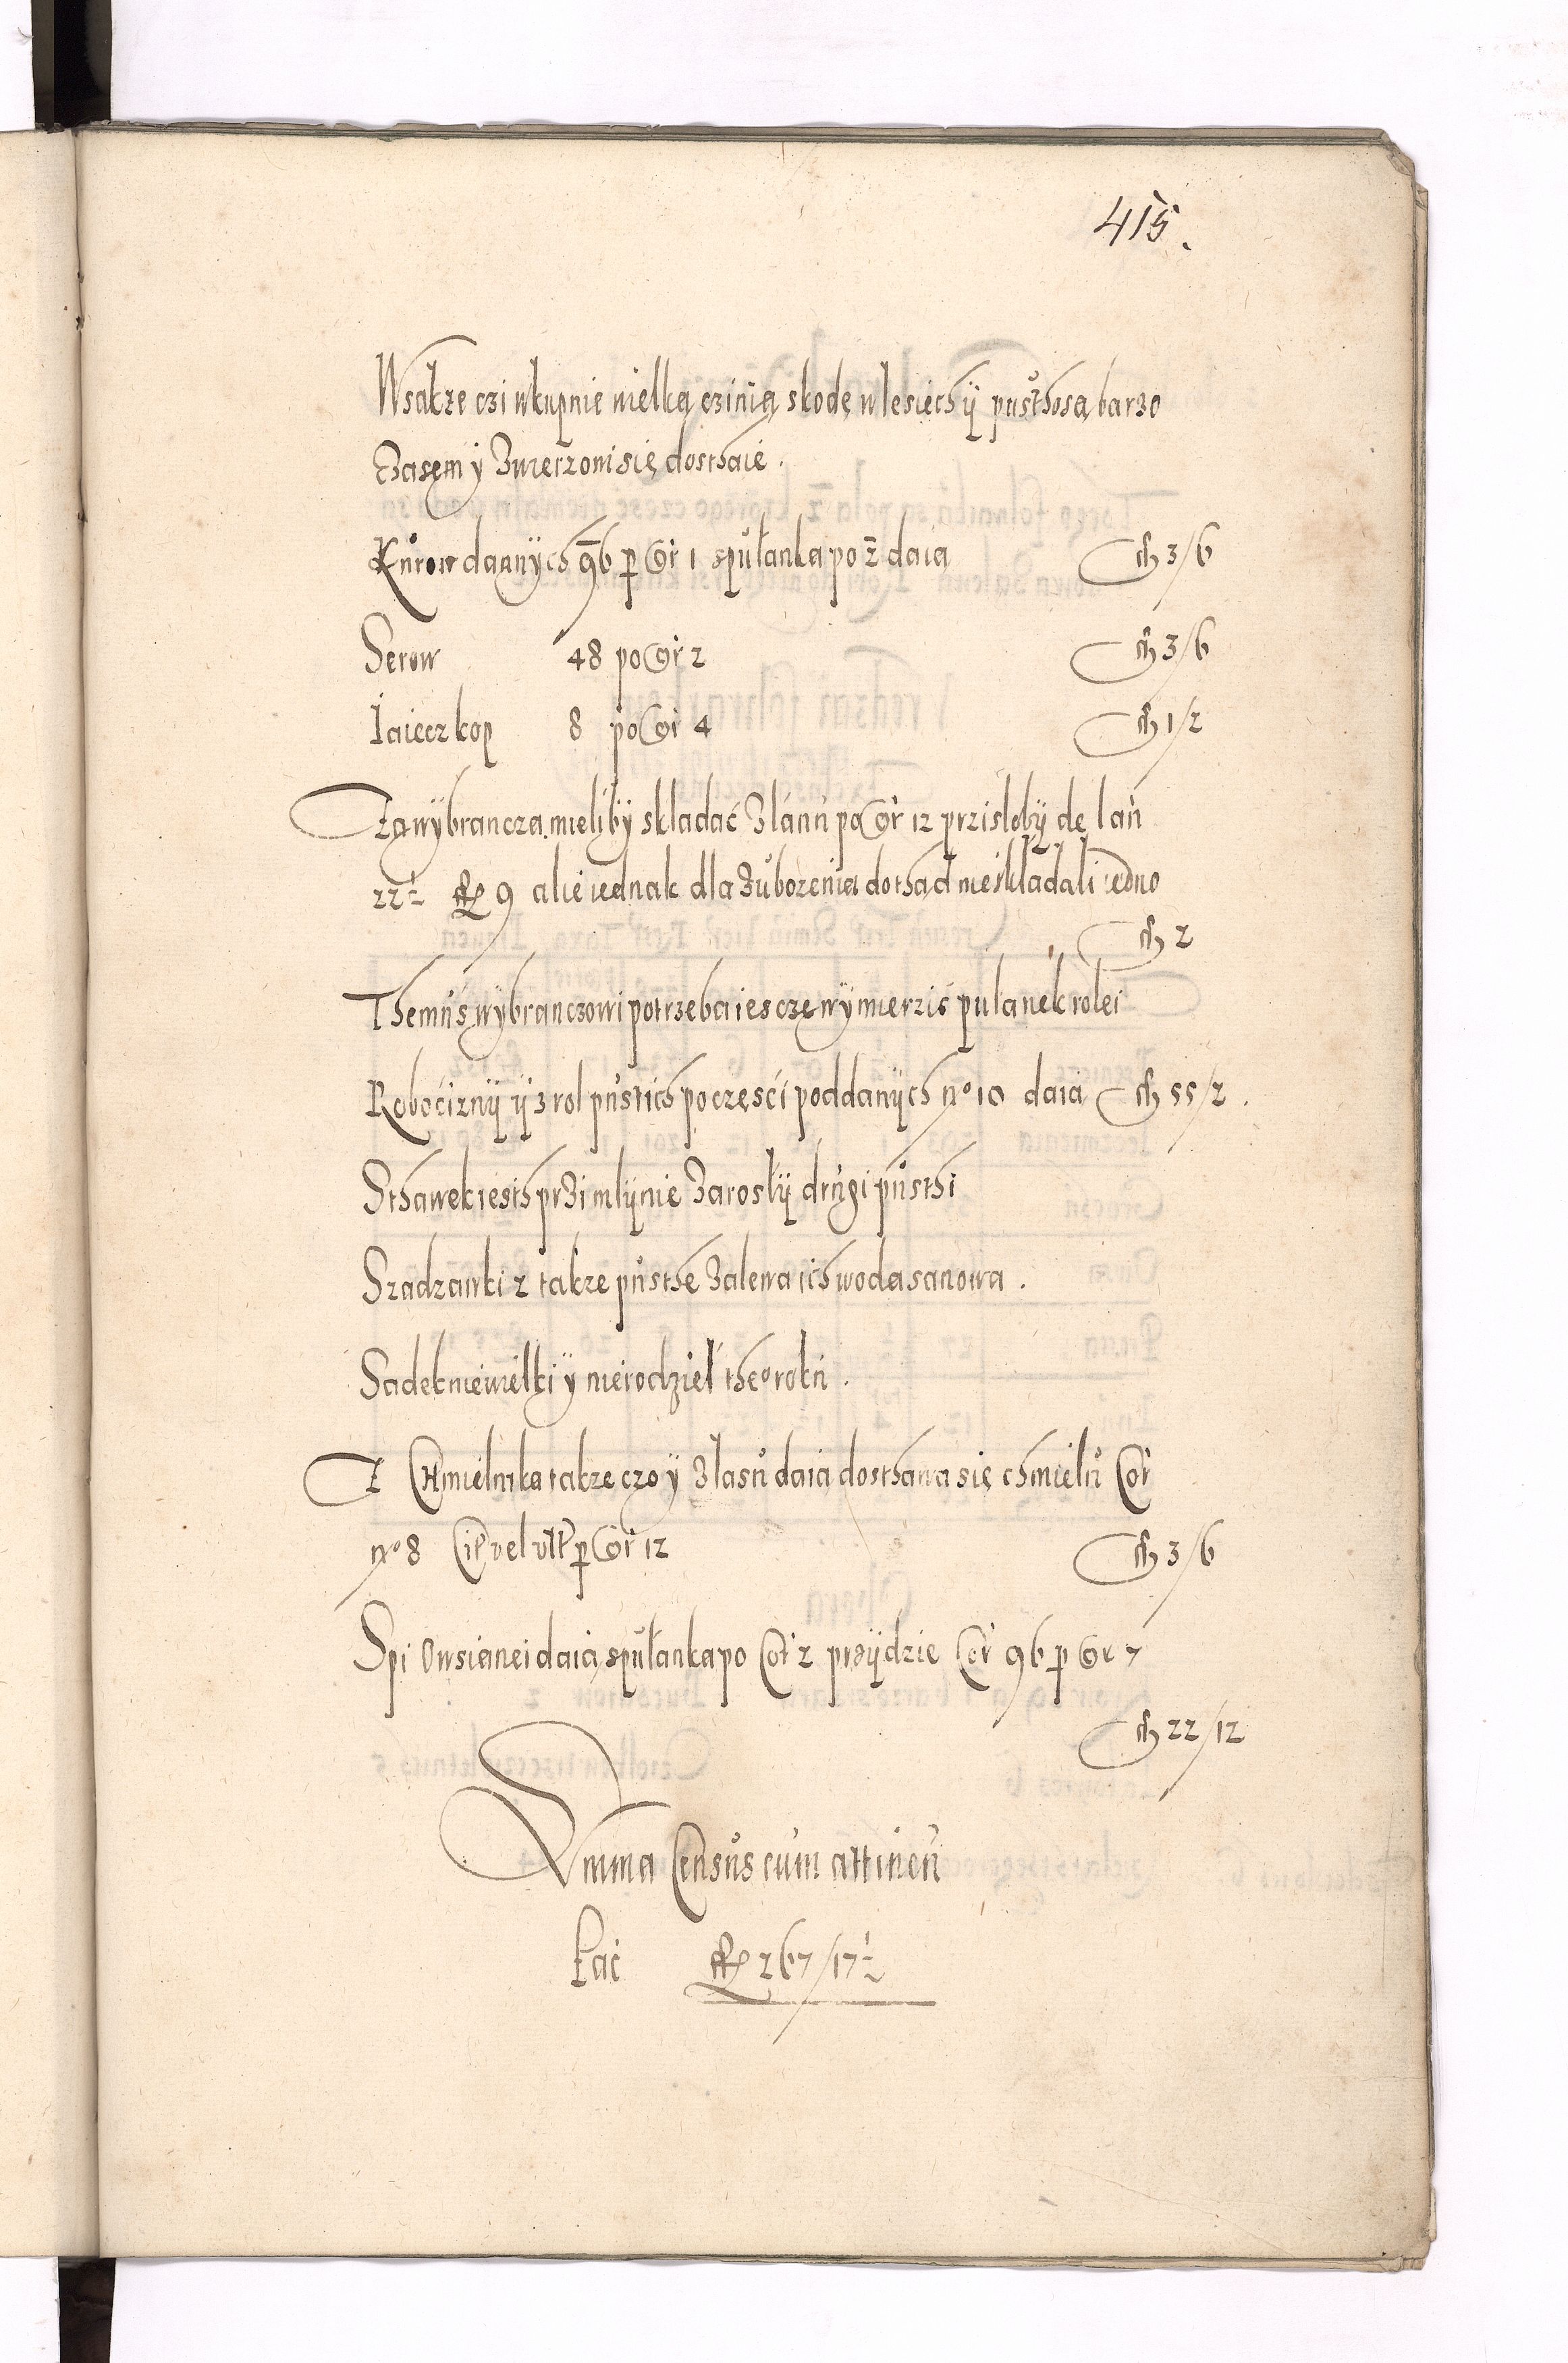 415.
Wsakze czi wkupnie wielką czinią skodę w lesiech ÿ pusthosą barzo
Zasęm y Zwierzowi się dosthaie.
Kurow danÿch 96 p gr 1 spułanka po 2 daią fl 3/6
Serow 48 po gr 2 fl 3/6
Iaiecz kop 8 po gr 4 fl 1/2
Za wÿbrancza mieli bÿ skladać Z lánu po gr 12 prziszło bÿ de lan
22½ fl 9 alie iednak dla Zubozenia dothąd nie skladali iedno
fl 2
Themus wÿbranczowi potrzeba iescze wÿmierzic pulanek rolei
Robocizny ÿ z rol pustich po częsci poddanÿch nº 10 daią fl 55/2.
Sthawek iesth prZi mlÿnie Zarosły drugi pusthi
Szadzawki 2 takze pusthe Zalewa ich woda sanowa.
Sadek niewielki y nierodzieł theº roku.
Z Chmielnika takze czo ÿ Z lasu daią dosthawa się chmielu Cor
nº 8 Cir vel ultr p gr 12 fl 3/6
Spi Owsianei daią spułanka po Cor 2 przÿdzie Cor 96 p gr 7
fl 22/12
Summa Census cum attinen
Fac fl 267/17½